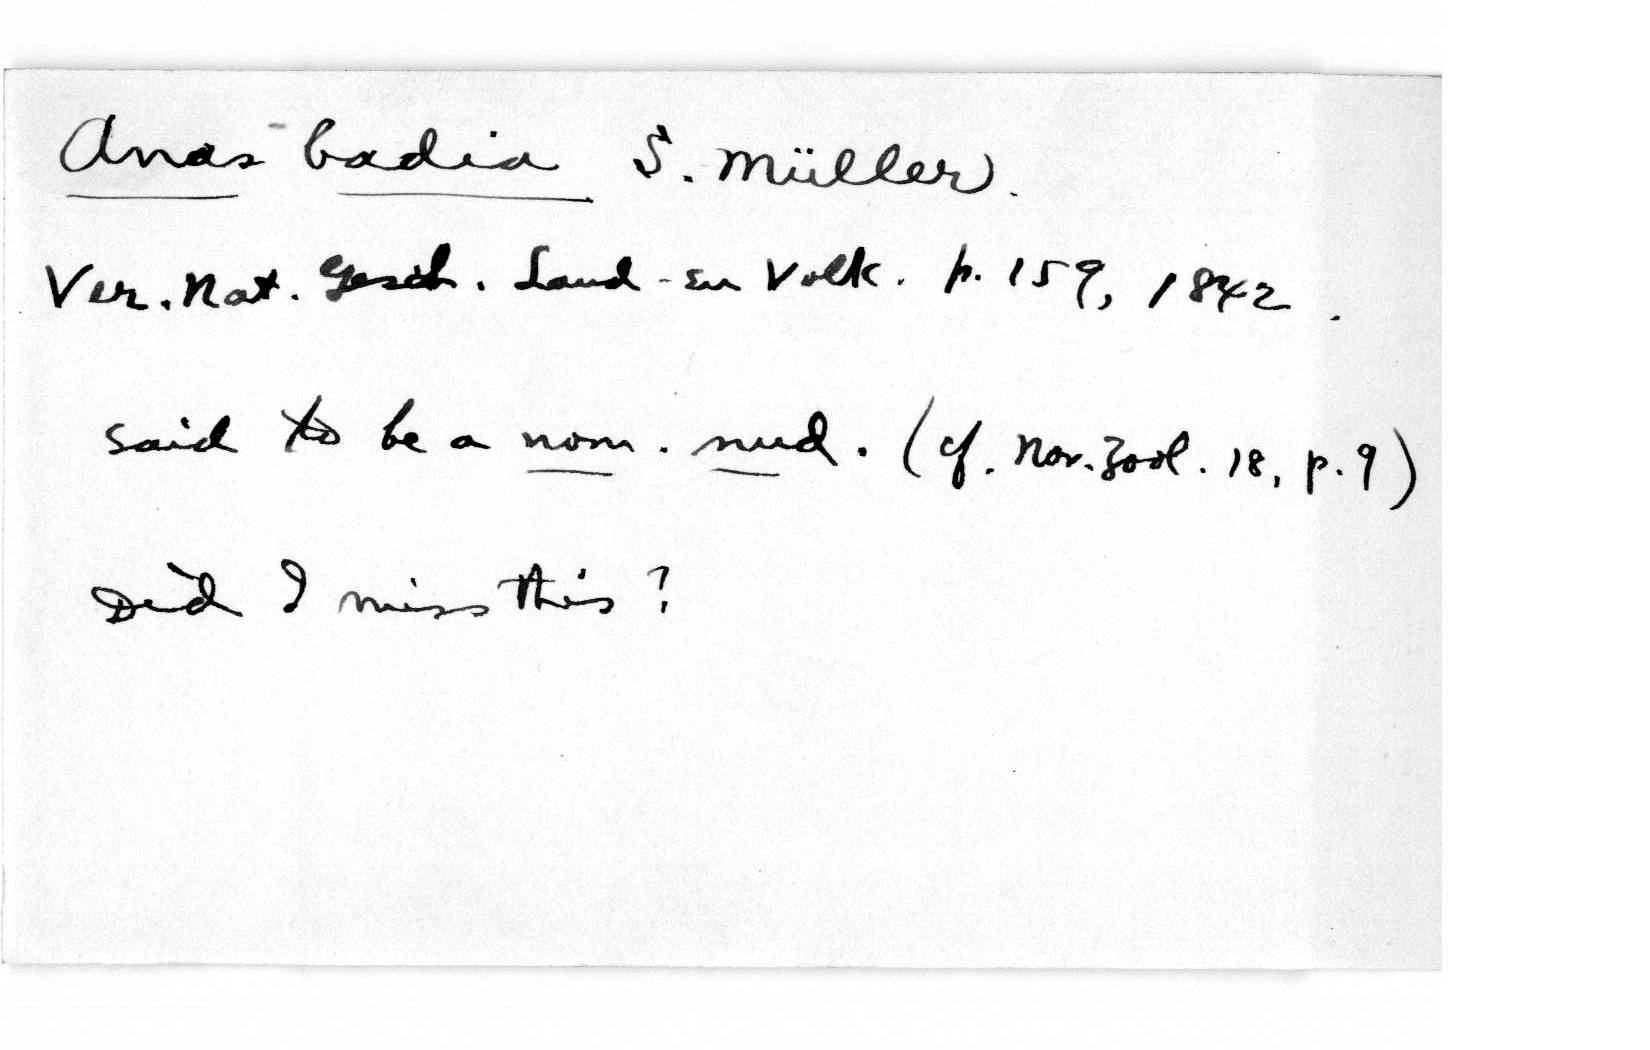 Anas badia S. Müller.
Ver. Nat. Gesch. Land-en Volk. p. 159, 1842.
said to be a nom. nud. (cf. Nov. Zool. 18, p. 9)
Did I miss this?